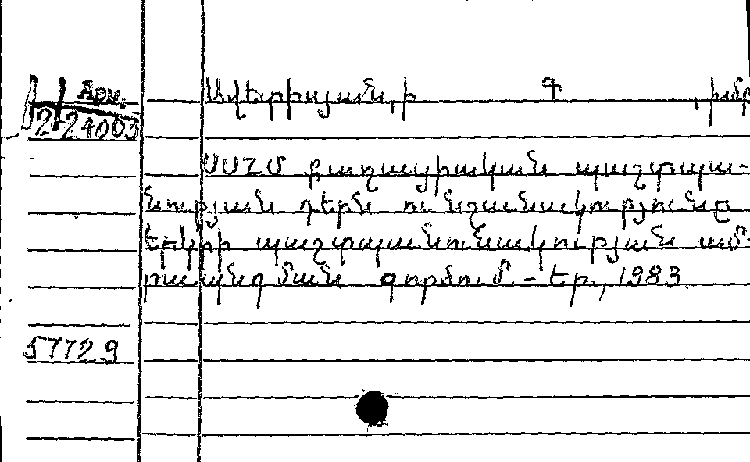 Արմ. Ավերիսյան, Գ , խմբ
12/24003
ՍՍՀՄ քաղաքացիական պաշտպա-
նության դերն ու նշանակությունը
երկրի պաշտպանունակության ամ-
րապնդման գործում - Եր., 1983
57729